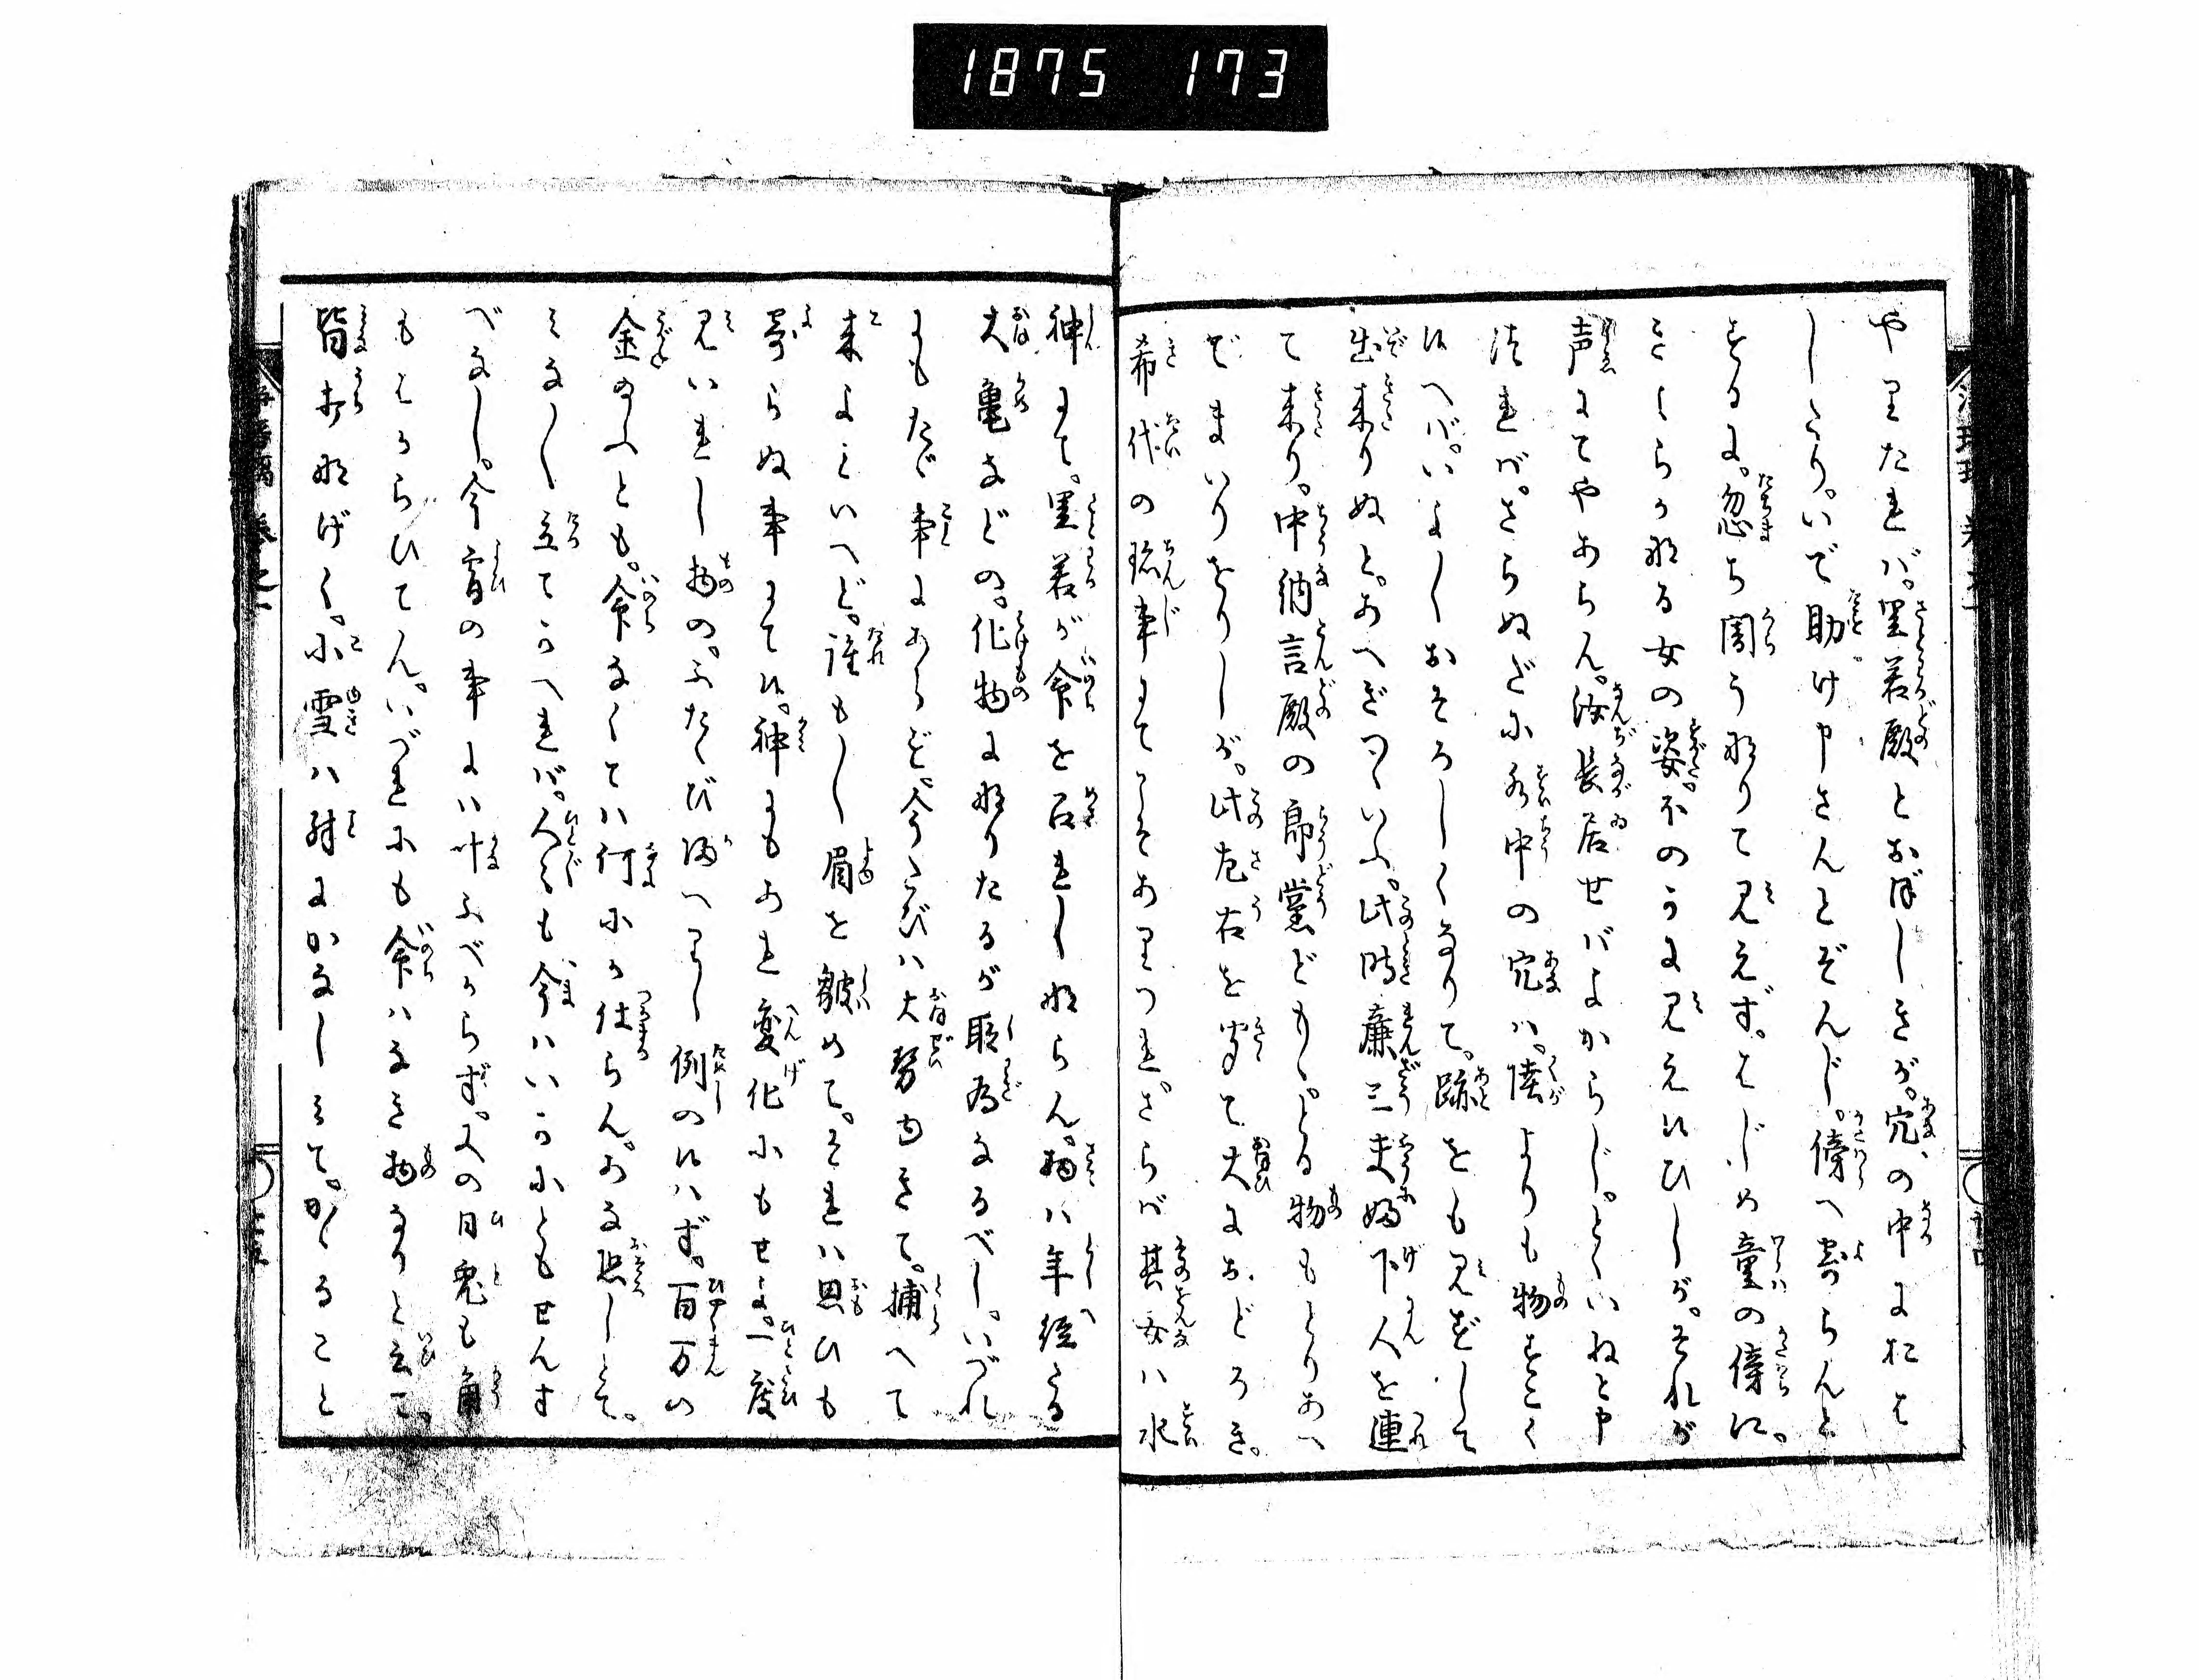 1875 173
やりたれバ。里若殿とおぼしきが。穴の中におは
しさり。いで助け申さんとぞんじ。傍へ寄らんと
する に。忽ち闇うなりて見えず。はじめ童の傍に。
きよらかなる女の姿。不のうに見え候ひしが。それが
声にてやあらん。汝長居せバよからじ。とくいねと申
つれバ。さらぬだに水中の穴ハ。陸よりも物すごく
候へバ。いよ〱おそろしくなりて。跡をも見ずして
出来りぬと。あへぎつゝいふ。此時廉三夫婦下人を連
て来り。中納言殿の郎黨ども。とる物もとりあへ
でまいりをりしが。此左右を守て大におどろき。
希代の珎事にてこそありつれ。ざらバ其女ハ水
神にて。里若が命を召れしならん。扨ハ年経たる
大亀などの。化物になりたるが所為なるべし。いづれ
にもたゞ事にあらど。今たびハ大勢ゆきて。捕へて
来よといへど。誰も〱眉を皺めて。それハ思ひも
寄らぬ事にて候。神にもあれ変化にもせよ。一度
見いれし物の。ふたゝび還へりし例の候ハず。百万の
金のへとも。命なくてハ何にか仕らん。あな恐しとて。
みな〱立てかへれバ。人〻も今ハいかにともせんす
べなし。今宵の事にハ叶ふべからず。又の日兎も角
もはからひてん。いづれにも命ハなき物なりと云て。
皆打なげく。小雪ハ殊にかなしみて。かゝること